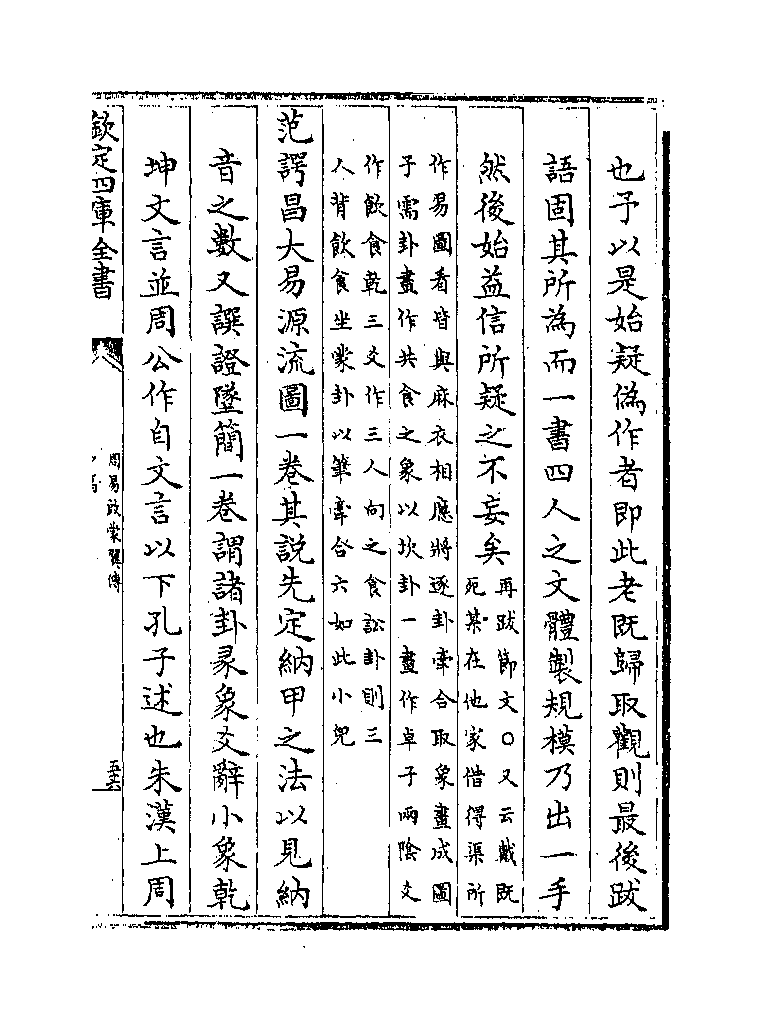 也予以是始疑偽作者即此老既歸取觀則最後跋
語固其所為而一書四人之文體製規模乃出一手
然後始益信所疑之不妄矣
再跋節文○又云戴既
死某在他家借得渠所
作易圖看皆與麻衣相應將逐卦牽合取象畫成圖
子需卦畫作共食之象以坎卦一畫作卓子兩陰爻
作飲食乾三爻作三人向之食訟卦則三
人背飲食坐蒙卦以筆牽合六如此小兒
范諤昌大易源流圖一卷其說先定納甲之法以見納
音之數又譔證墜簡一卷謂諸卦彖象爻辭小象乾
坤文言並周公作自文言以下孔子述也朱漢上周
欽定四庫全書
周易啟蒙翼傳
五十六